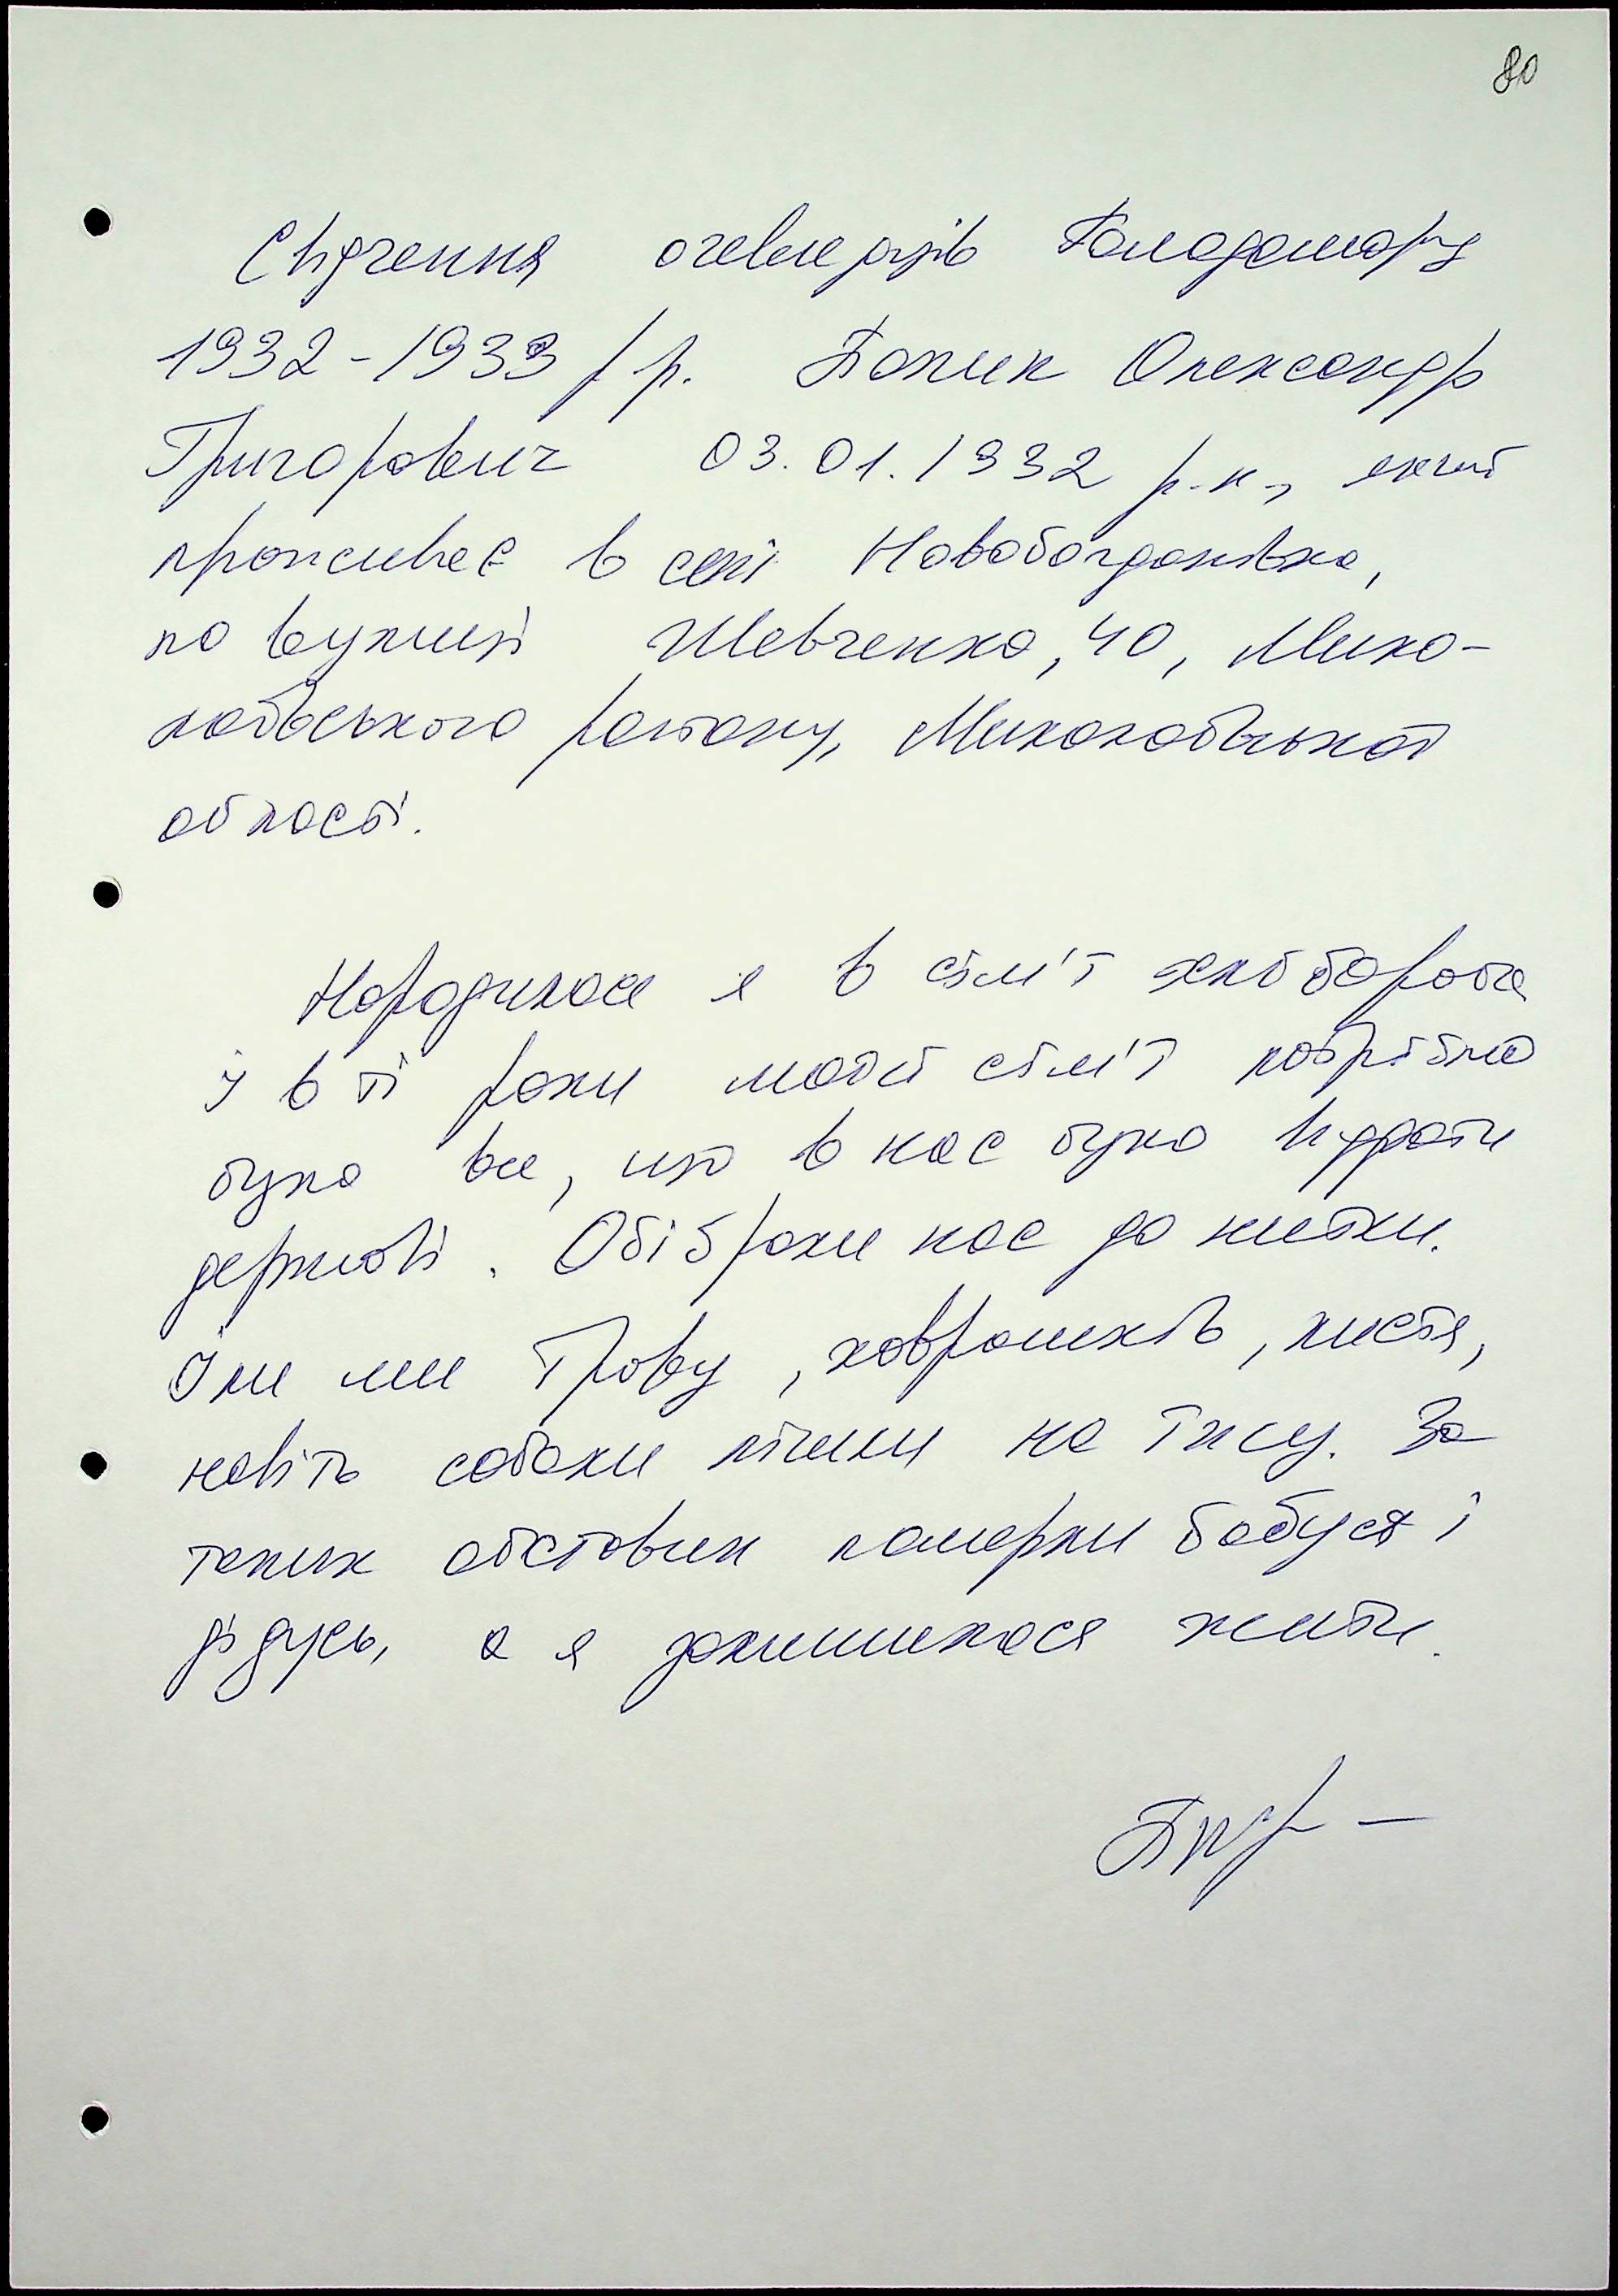 80
Свідчення очевидців Голодомору
1932-1933 рр. Балик Олександр
Григорович 03.01.1932 р.н., який
проживає в селі Новобогданівка,
по вулиці Шевченка, 40, Мико-
лаївського району, Миколаївської
області.
Народилася я в сім'ї хлібороба
і в ті роки моїй сім'ї потрібно
було все, що в нас було віддати
державі. Обібрали нас до нитки.
Їли ми траву, ховрашків, листя,
навіть собаки пішли на їжу. За
таких обставин померли бабуся і
дідусь, а я залишилася жити.